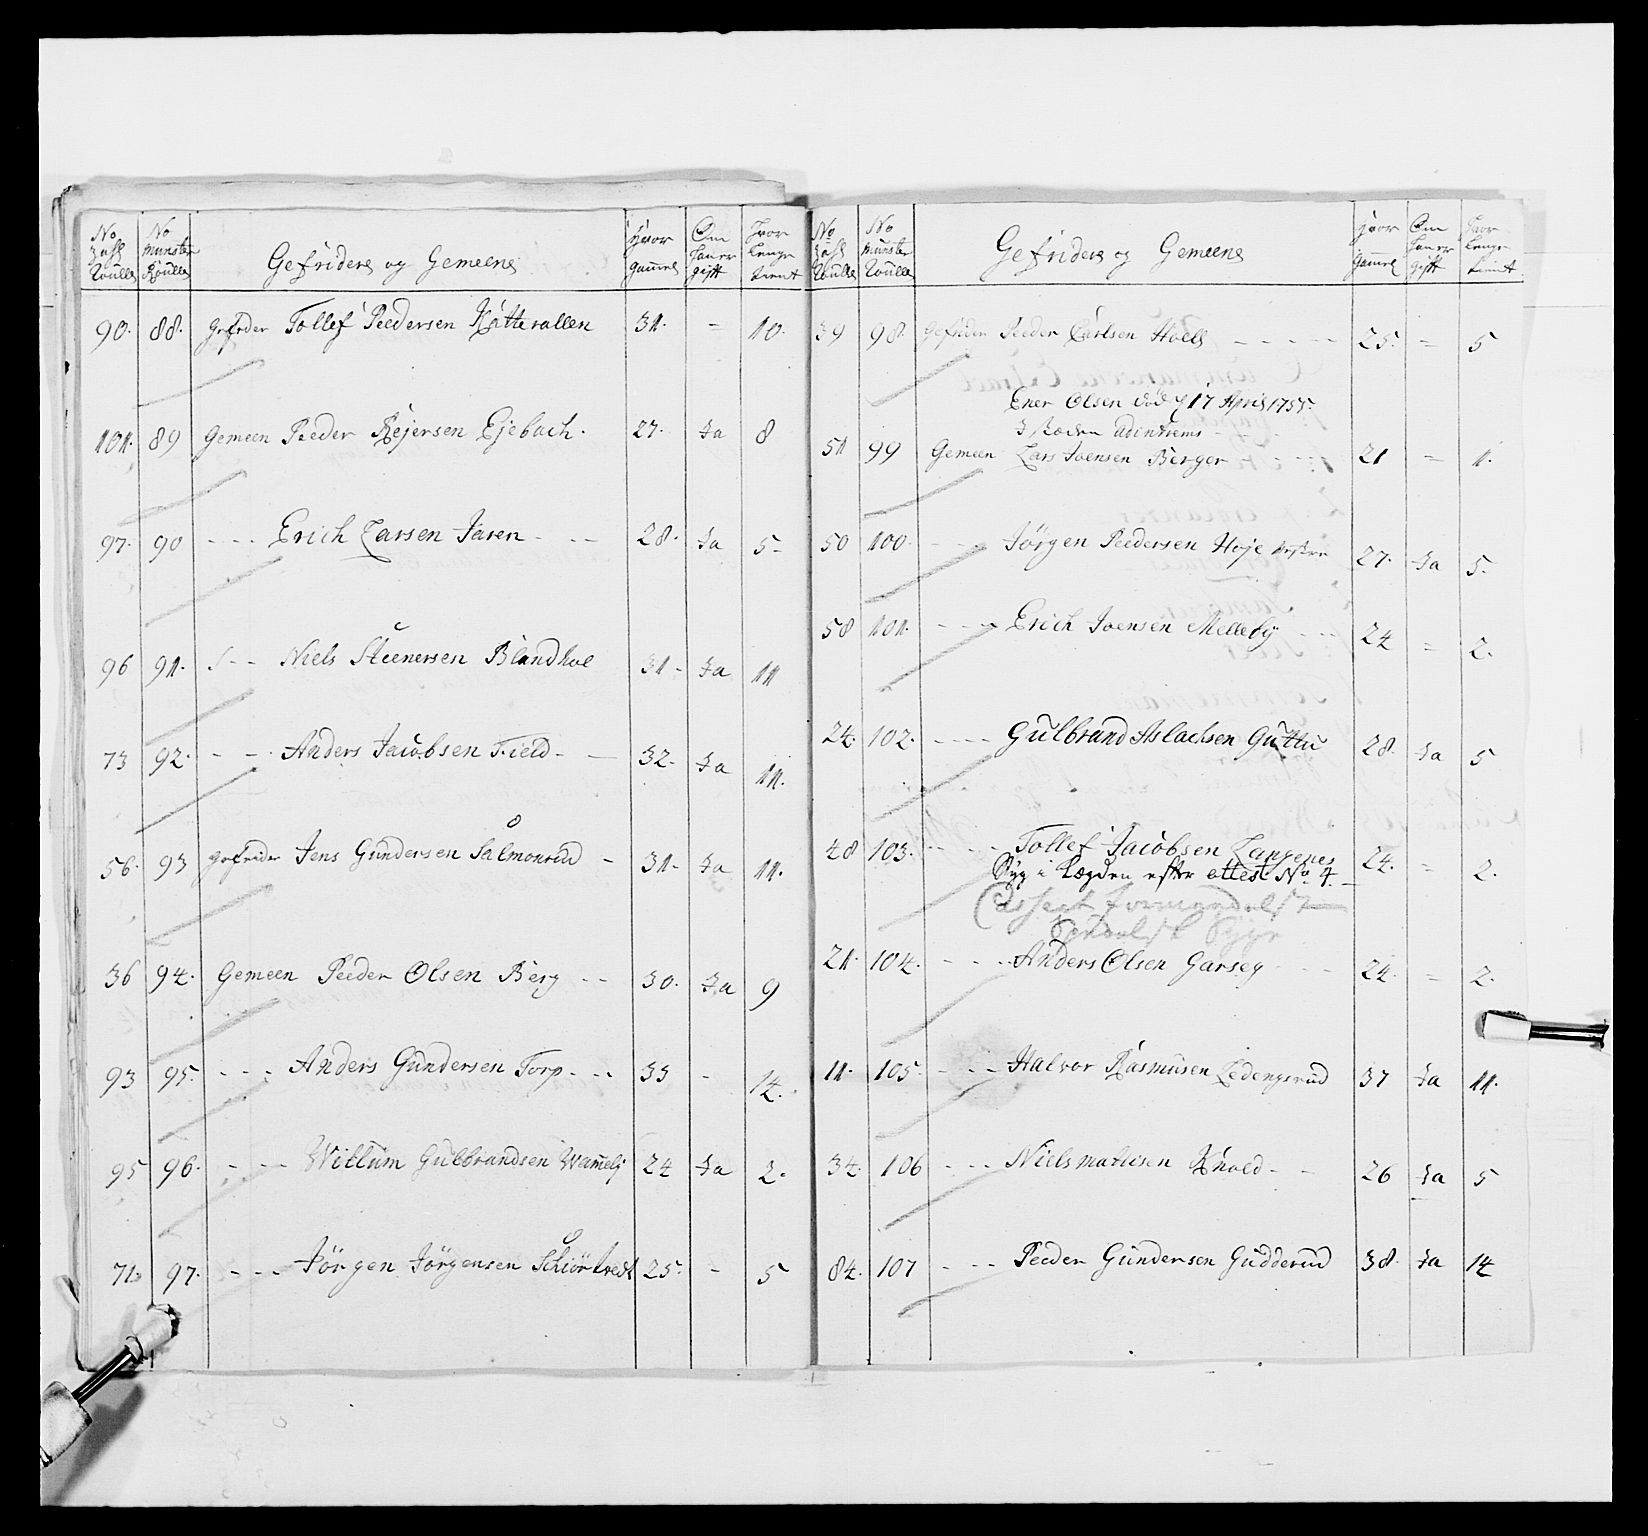 No Zahl Roulle | No Munster Roulle | Gefridere og Gemeene | Hvor gammel | Om hand er gift | Hvor lenge tient
90. 88. Gefrider Tollef Peedersen 31. - 10.
101. 89 Gemeen Peeder Rejersen Ejebach. 27. Ja 8
97. 90 - - - Erich Larsen Jaren - - - 28. Ja 5-
96 91. - - Niels Steenersen Blandhol 31- Ja 11
73 92. - - - Anders Jacobsen Field - - 32. Ja 11.
56. 93 Gefrider Jens Gundersen Salmonrud - 31- Ja 11.
36 94. Gemeen Peeder Olsen Berg - - 30. Ja 9
93 95. - - - Anders Gundersen Torp - - - 33 - 14.
95 96. - - - Willum Gulbrandsen 24 Ja 2.
71. 97. - - - Jörgen Jörgensen 25. - 5
No Zahl Roulle | No Munster Roulle | Gefridere og Gemeene | Hvor gammel | Om hand er gift | Hvor lenge tient
39 98. Gefrider Peeder Carlsen Hoell - - - - - 25. - 5
Ener Olsen död 17 April 1755.
51 99 Gemeen Lars Joensen Berger 21 - 1.
50 100. - - - Jörgen Peedersen Hoje 27. Ja 5.
58 101. - - - Erich Joensen Melleby - - - 24 - 2.
24. 102. - - - - Gulbrand Aslachsen Guttu 28. Ja 5
48 103. - - - Tollef Jacobsen Langenes 24. - 2.
Syg i Lægden efter attest No 4. -
Cassert
21. 104. - - - - Anders Olsen Garseg - - - 24. - 2.
11. 105. - - - Halvor Rasmusen 37 Ja 11.
34. 106 - - - Niels Matiesen - - 26 Ja 5
84. 107 - - - Peeder Gundersen Gudderud 38. Ja 14